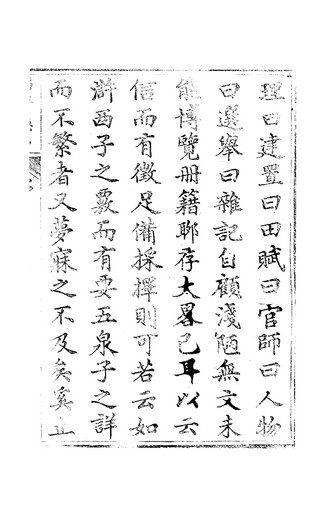 理曰建置曰田賦曰官師曰人物
曰選舉曰雜記自顧淺陋無文未
能博覽册籍聊存大畧已耳以云
信而有徵足備採擇則可若云如
滸西子之覈而有要五泉子之詳
而不繁者又夢寐之不及矣奚止